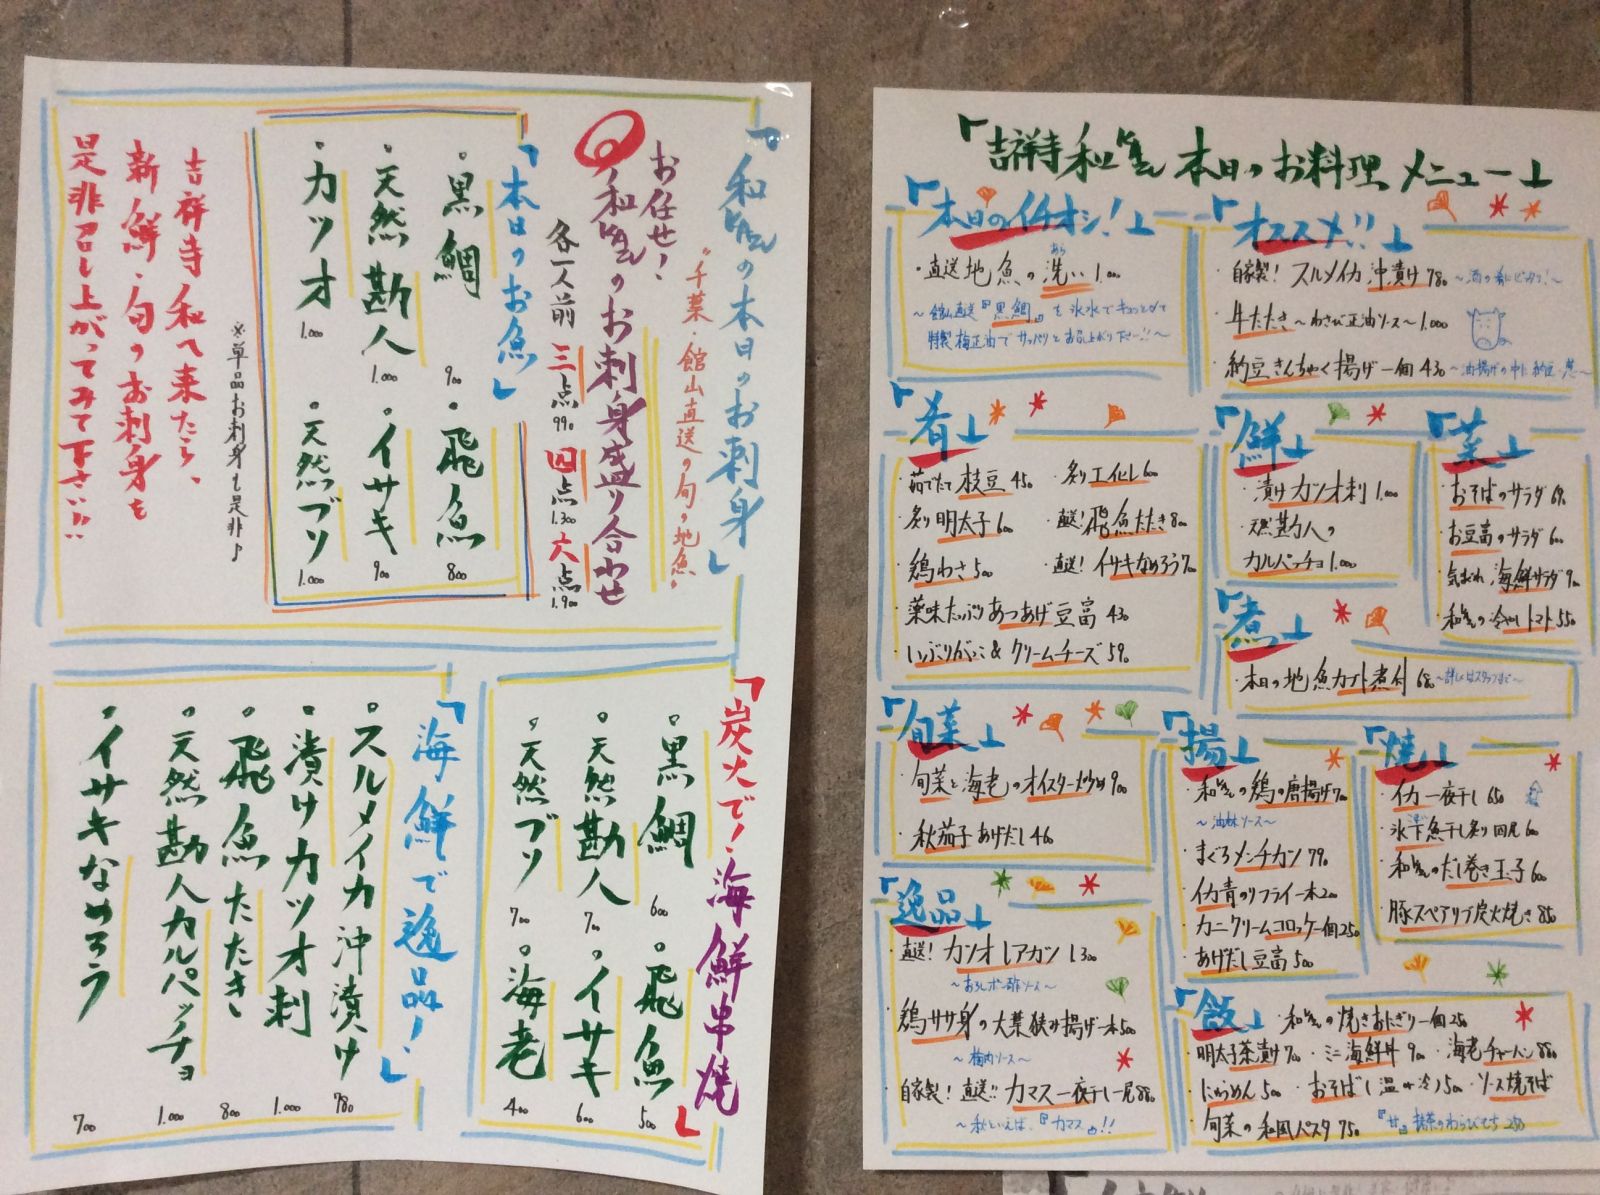 の本日のお刺身」
"千葉・館山直送の旬の地魚"
お任せ!
のお刺身盛り合わせ
各一人前 三点 990 四点 1.300 六点 1.900
「本日のお魚」
・黒鯛 900 ・飛魚 800
・天然勘八 1.000 ・イサキ 900
・カツオ 1.000 ・天然ブリ 1.000
※単品お刺身も是非♪
吉祥寺和へ来たら、
新鮮・旬のお刺身を
是非召し上がってみて下さい!!
「炭火で!海鮮串焼」
・黒鯛 600 ・飛魚 500
・天然勘八 700 ・イサキ 600
・天然ブリ 700 ・海老 400
「海鮮で逸品!」
・スルメイカ沖漬け 780
・漬けカツオ刺 1.000
・飛魚たたき 800
・天然勘八カルパッチョ 1.000
・イサキなめろう 700
本日のお料理メニュー」
「本日のイチオシ!」
・直送地魚の洗い 1.000
あら
〜館山直送『黒鯛』を氷水でキュッとしめて
特製梅正油でサッパリとお召し上がり下さい!!〜
「オススメ!!」
・自家製!スルメイカ沖漬け 780 〜酒の肴にピッタリ!〜
・牛たたき〜わさび正油ソース〜 1.000
・納豆きんちゃく揚げ一個 430 〜油揚げの中に納豆・葱〜
「肴」
・茹でたて枝豆 450 ・炙りエイヒレ 600
・炙り明太子 600 ・直送!飛魚たたき 800
・鶏わさ 500 ・直送!イサキなめろう 700
・薬味たっぷりあつあげ豆富 430
・いぶりがっこ&クリームチーズ 590
「鮮」
・漬けカツオ刺 1.000
・天然勘八の
カルパッチョ 1.000
「菜」
・おそばのサラダ
・お豆富のサラダ 600
・気まぐれ海鮮サラダ 900
の冷やしトマト 550
「煮」
・本日の地魚カブト煮付 680 〜詳しくはスタッフまで〜
「旬菜」
・旬菜と海老のオイスター炒め 900
・秋茄子あげだし 460
「揚」
の鶏の唐揚げ 700
〜油淋ソース〜
・まぐろメンチカツ 790
・イカ青のりフライ一本 200
・カニクリームコロッケ一個 250
・あげだし豆富 500
「焼」
・イカ一夜干し 650
・氷下魚干し炙り四尾 600
のだし巻き玉子 600
・豚スペアリブ炭火焼き 850
「逸品」
・直送!カツオレアカツ 1.300
〜おろしポン酢ソース〜
・鶏ササ身の大葉挟み揚げ一本 500
〜梅肉ソース〜
・自家製!直送!!カマス一夜干し一尾 880
〜秋といえば、『カマス』!!
「飯」
の焼きおにぎり一個 250
・明太子茶漬け 700 ・ミニ海鮮丼 900 ・海老チャーハン 880
・にゅうめん 500 ・おそば(温or冷) 500 ・ソース焼そば
・旬菜の和風パスタ 750 『甘』抹茶のわらびもち 250